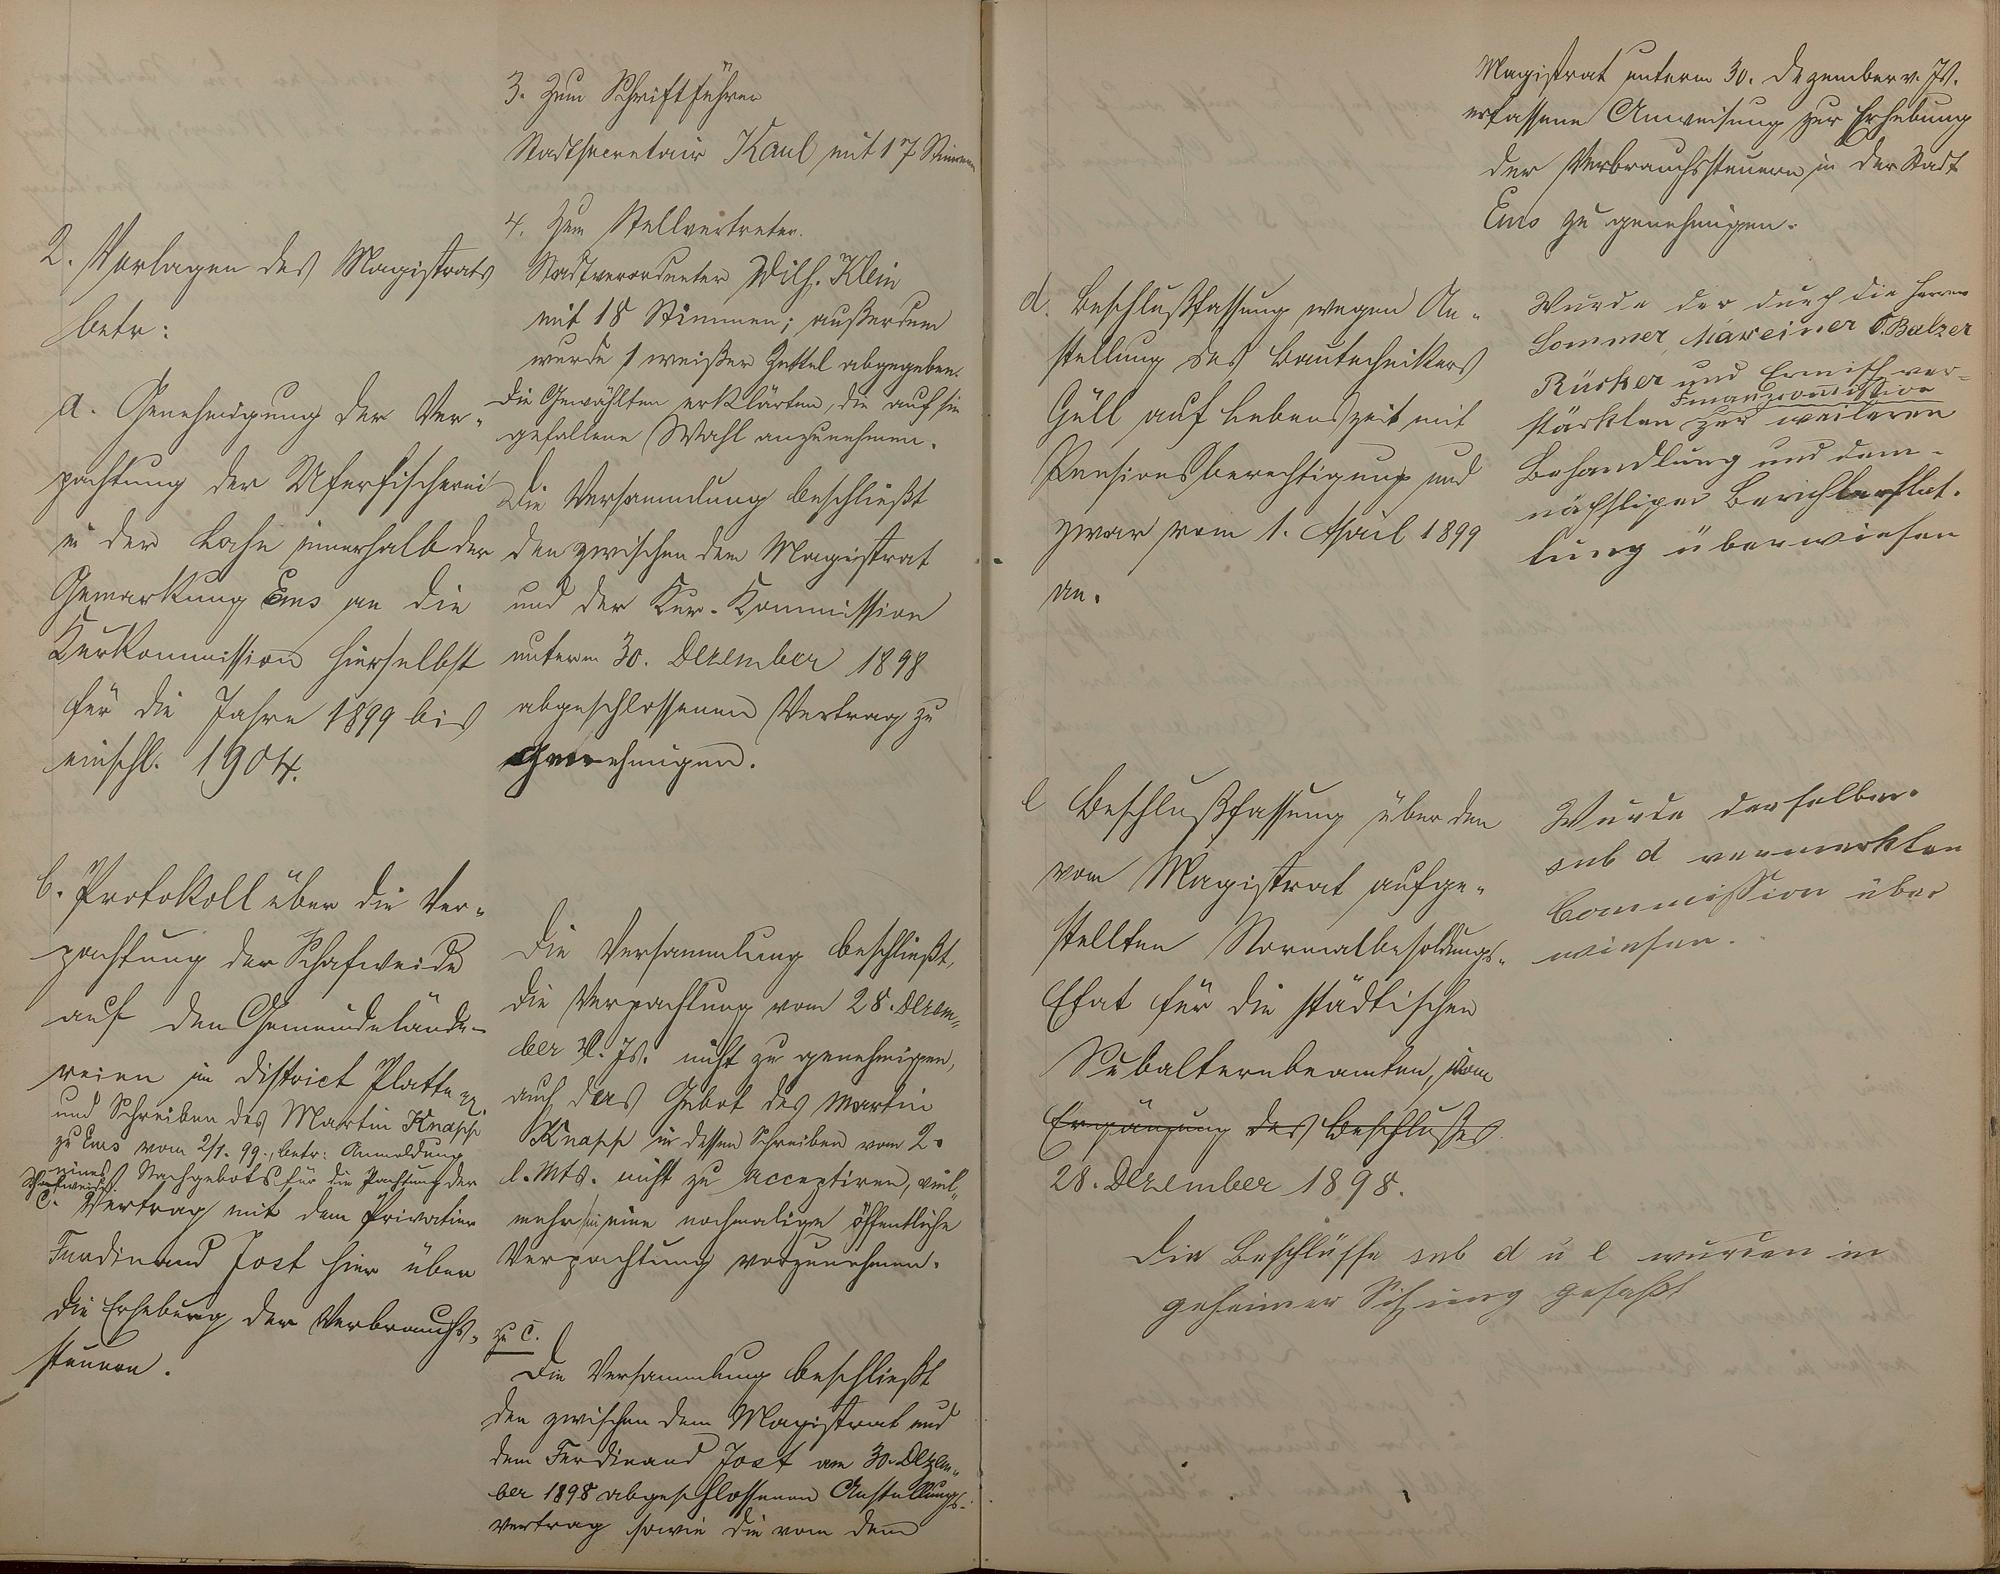 3. Zum Schriftführer
Stadtsecretair Kaul mit 17 Stimmen
4. Zum Stellvertreter.
Stadtverordneter Wilh. Klein
mit 18 Stimmen; außerdem
wurde 1 weißer Zettel abgegeben.
Die Gewählten erklärten, die auf sie
gefallene Wahl anzunehmen.
2. Vorlagen des Magistrats
betr:
a. Genehmigung der Ver-
pachtung der Uferfischerei
in der Lahn innerhalb der
Gemarkung Ems an die
Kurkommission hierselbst
für die Jahre 1899 bis
einschl. 1904.
Die Versammlung beschließt
den zwischen dem Magistrat
und der Kur-Kommission
unterm 30. Dezember 1898
abgeschlossenen Vertrag zu
genehmigen.
b. Protokoll über die Ver-
pachtung der Schafweide
auf den Gemeindelände-
reien im District Platte
und Schreiben des Martin Knapp
zu Ems vom 2/1. 99., betr: Anmeldung
eines Nachgebots für die Pachtung der
Schafweide.
Die Versammlung beschließt,
die Verpachtung vom 28. Dezem-
ber v. Js. nicht zu genehmigen,
auch das Gebot des Martin
Knapp in dessen Schreiben vom 2.
l. Mts. nicht zu acceptiren, viel-
mehr eine nochmalige öffentliche
Verpachtung vorzunehmen.
c. Vertrag mit dem Privatier
Ferdinand Jost hier über
die Erhebung der Verbrauchs-
steuern.
zu c.
Die Versammlung beschließt
den zwischen dem Magistrat und
dem Ferdinand Jost am 30. Dezem-
ber 1898 abgeschlossenen Anstellungs-
vertrag sowie die von dem
Magistrat unterm 30. Dezember v. Js.
erlassene Anweisung zur Erhebung
der Verbrauchssteuern in der Stadt
Ems zu genehmigen.
d. Beschlußfassung wegen An-
stellung des Bautechnikers
Güll auf Lebenszeit mit
Pensionsberechtigung und
zwar vom 1. April 1899
an.
Wurde der durch die Herren
Sommer, Mareiner C. Balzer
Rücker und Ermisch ver-
stärkten Finanzcomission zur weiteren
Behandlung und dem-
nächstigen Berichterstat-
tung überwiesen
e Beschlußfassung über den
vom Magistrat aufge-
stellten Normalbesoldungs-
Etat für die städtischen
Subalternbeamten, vom
Ergänzung des Beschlusses
28. Dezember 1898.
Wurde derselben
sub d vermerkten
Commission über
wiesen.
Die Beschlüsse sub d u e wurden in
geheimer Sitzung gefaßt